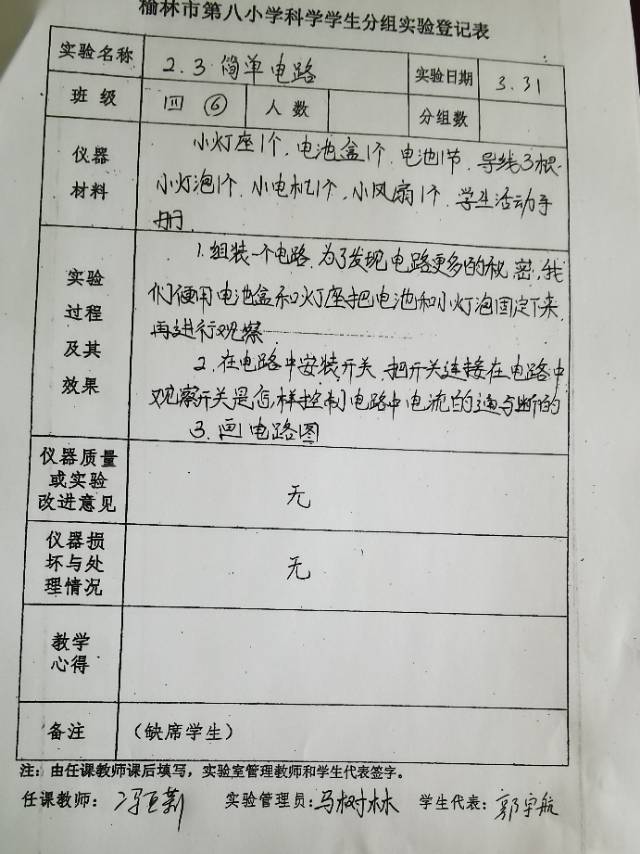 榆林市第八小学科学学生分组实验登记表
实验名称 2.3 简单电路 实验日期 3.31
班级 四 ⑥ 人数 分组数
仪器材料 小灯座1个.电池盒1个.电池1节.导线3根.
小灯泡1个.小电机1个.小风扇1个.学生活动手
册
实验过程及其效果 1.组装一个电路.为了发现电路更多的秘密,我
们使用电池盒和灯座把电池和小灯泡固定下来,
再进行观察
2.在电路中安装开关.把开关连接在电路中
观察开关是怎样控制电路中电流的通与断的
3.画电路图
仪器质量或实验改进意见 无
仪器损坏与处理情况 无
教学心得
备注 (缺席学生)
注:由任课教师课后填写,实验室管理教师和学生代表签字。
任课教师: 实验管理员:马树林 学生代表:郭宇航